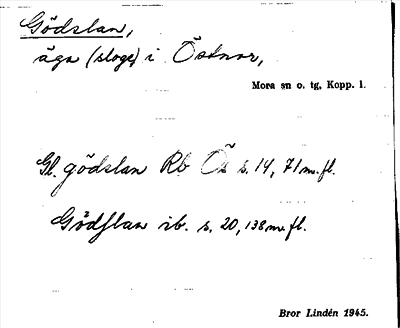 Gödslan,
äga (sloge) i Östnor,
Mora sn o. tg, Kopp. l.
Gl. gödslan Rb Ös s. 14, 71 m. fl.
Gödflan ib. s. 20, 138 m. fl.
Bror Lindén 1945.